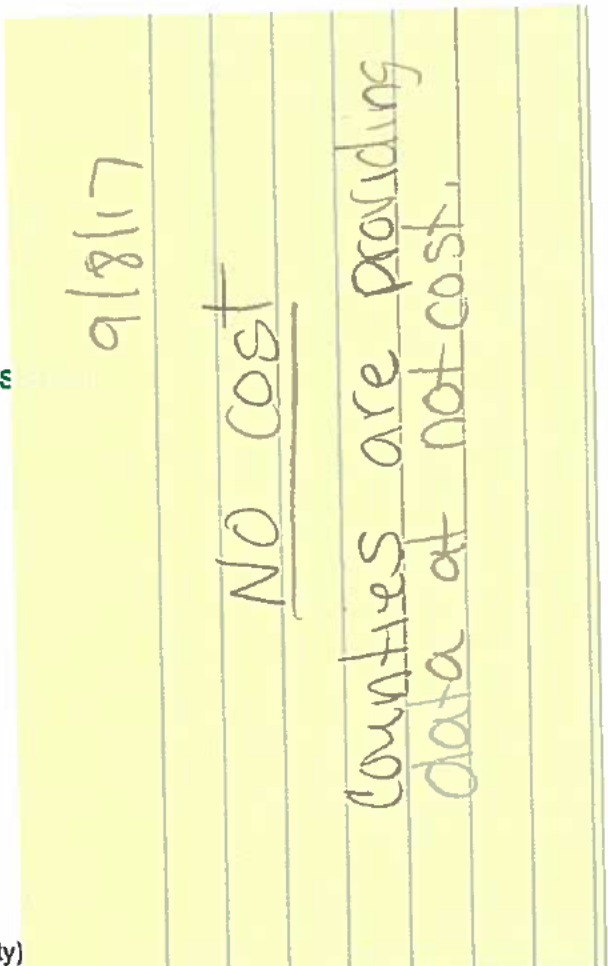 9/8/17
No cost
Counties are providing
data at not cost.
s
ty)